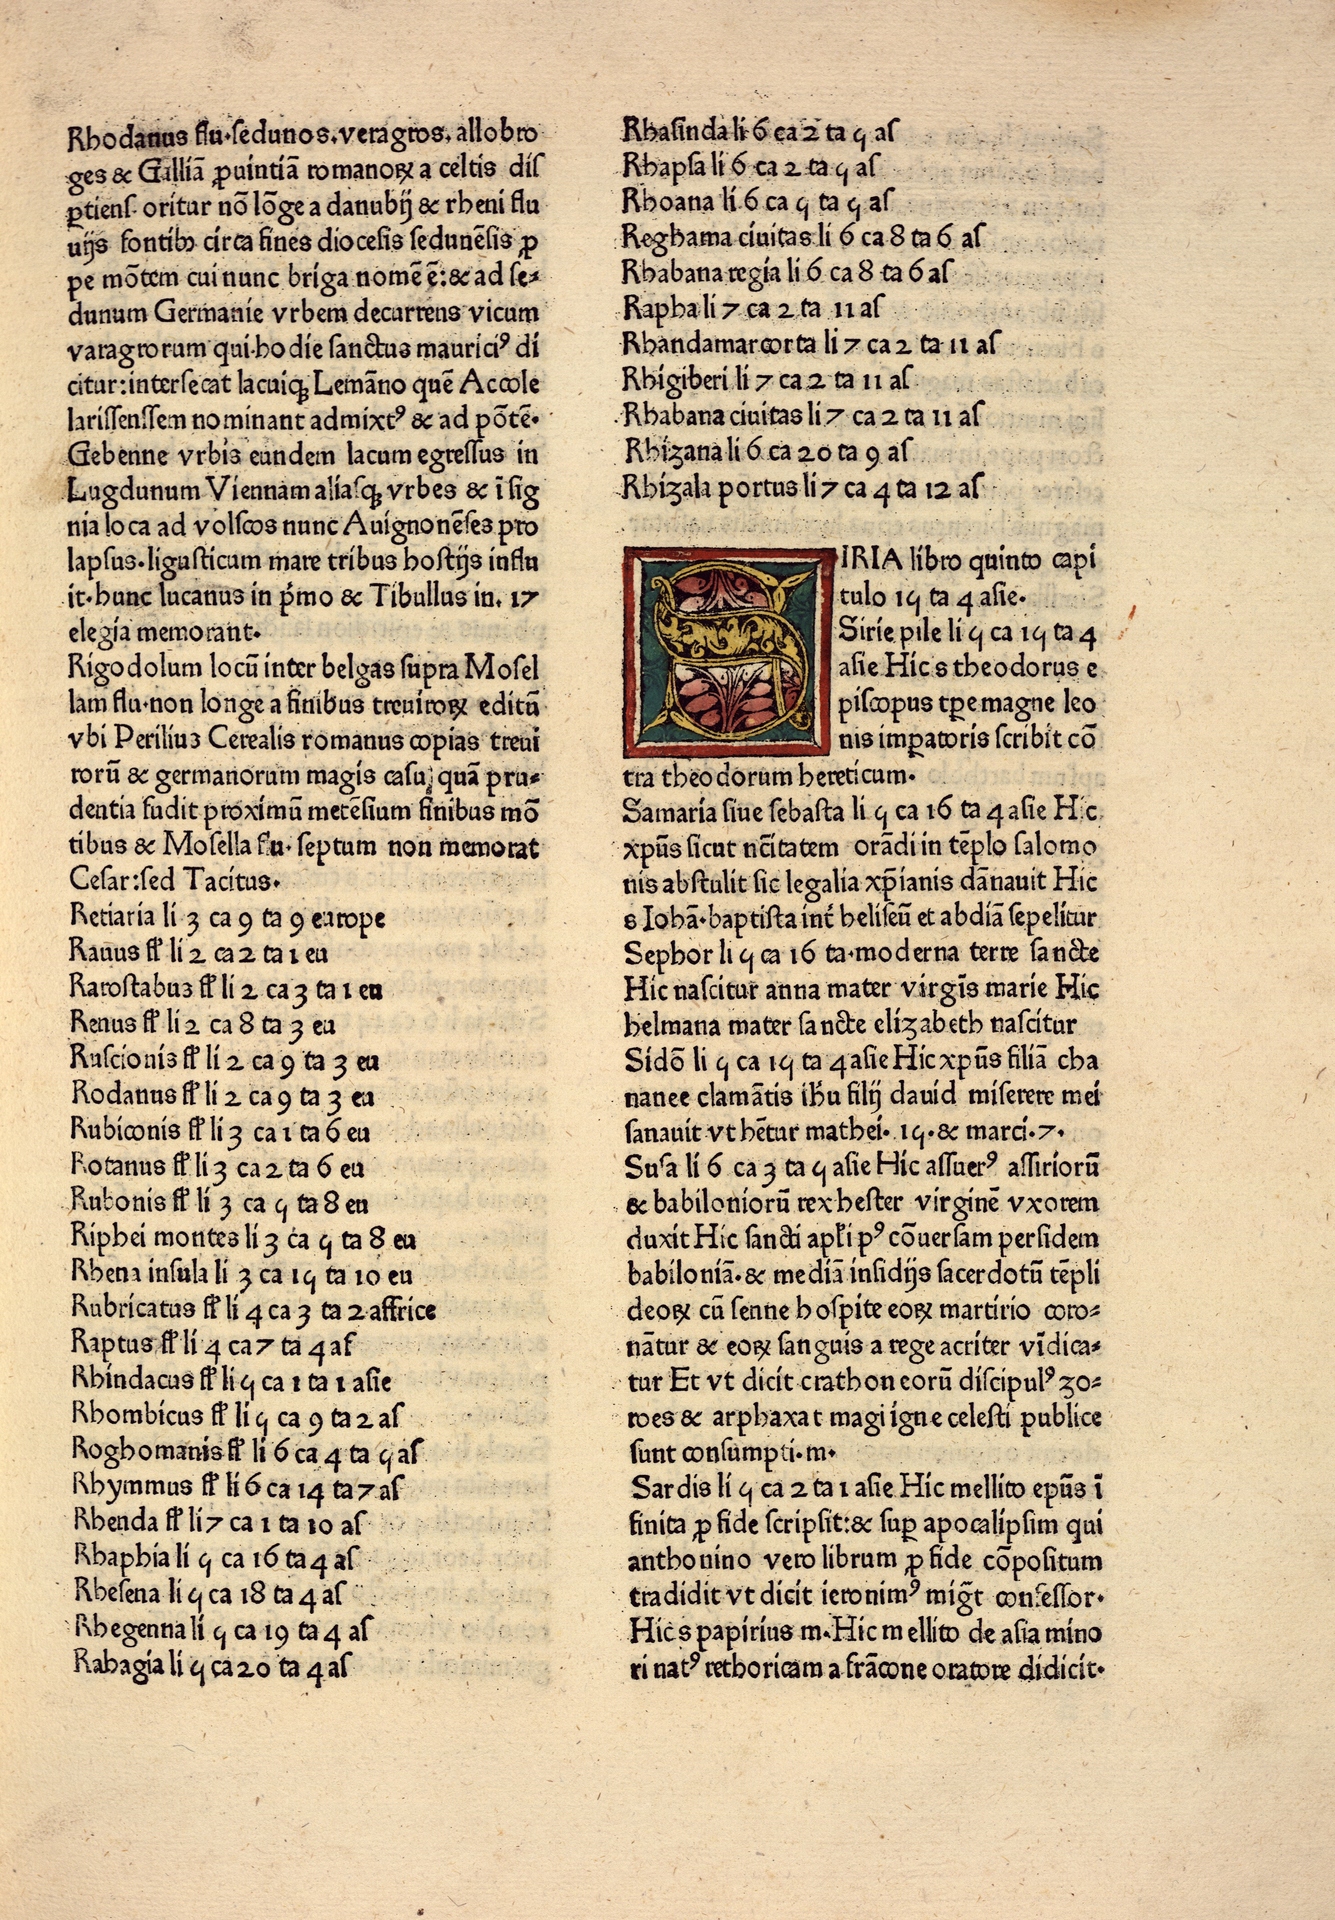 Rhodanus flu·sedunos.veragros.allobro
ges & Galliā ꝓuintiā romanoꝝ a celtis dis
ꝑtiens· oritur nō lōge a danubij & rheni flu
uijs fontibꝫ circa fines diocesis sedunēsis ꝓ
pe mōtem cui nunc briga nomē ē:& ad se⸗
dunum Germanie vrbem decurrens vicum
varagrorum qui·hodie sanctus mauriciꝰ di
citur:intersecat lacuiqꝫ Lemāno quē Accole
larissenssem nominant admixtꝰ & ad pōtē·
Gebenne vrbis eandem lacum egressus in
Lugdunum Viennam aliasqꝫ vrbes & īsig
nia loca ad volscos nunc Auignonēses pro
lapsus·ligusticum mare tribus hostijs influ
it·hunc lucanus in p̄mo & Tibullus in. 17
elegia memorant·
Rigodolum locū inter belgas supra Mosel
lam flu·non longe a finibus treuiroꝝ editū
vbi Periliuꝫ Cerealis romanus copias treui
rorū & germanorum magis casu quā pru⸗
dentia fudit proximū metēsium finibus mō
tibus & Mosella flu· septum non memorat
Cesar:sed Tacitus·
Retiaria li 3 ca 9 ta 9 europe
Rauus fl̄ li 2 ca 2 ta 1 eu
Rarostabuꝫ fl̄ li 2 ca 3 ta 1 eu
Renus fl̄ li 2 ca 8 ta 3 eu
Ruscionis fl̄ li 2 ca 9 ta 3 eu
Rodanus fl̄ li 2 ca 9 ta 3 eu
Rubiconis fl̄ li 3 ca 1 ta 6 eu
Rotanus fl̄ li 3 ca 2 ta 6 eu
Rubonis fl̄ li 3 ca 5 ta 8 eu
Riphei montes li 3 ca 5 ta 8 eu
Rhena insula li 3 ca 15 ta 10 eu
Rubricatus fl̄ li 4 ca 3 ta 2 affrice
Raptus fl̄ li 4 ca 7 ta 4 af
Rhindacus fl̄ li 5 ca 1 ta 1 asie
Rhombicus fl̄ li 5 ca 9 ta 2 as
Roghomanis fl̄ li 6 ca 4 ta 5 as
Rhymmus fl̄ li 6 ca 14 ta 7 as
Rhenda fl̄ li 7 ca 1 ta 10 as
Rhaphia li 5 ca 16 ta 4 as
Rhesena li 5 ca 18 ta 4 as
Rhegenna li 5 ca 19 ta 4 as
Rabagia li 5 ca 20 ta 4 as
Rhasinda li 6 ca 2 ta 5 as
Rhapsa li 6 ca 2 ta 5 as
Rhoana li 6 ca 5 ta 5 as
Reghama ciuitas li 6 ca 8 ta 6 as
Rhabana regia li 6 ca 8 ta 6 as
Rapha li 7 ca 2 ta 11 as
Rhandamarcorta li 7 ca 2 ta 11 as
Rhigiberi li 7 ca 2 ta 11 as
Rhabana ciuitas li 7 ca 2 ta 11 as
Rhizana li 6 ca 20 ta 9 as
Rhizala portus li 7 ca 4 ta 12 as
SIRIA libro quinto capi
tulo 15 ta 4 asie·
Sirie pile li 5 ca 15 ta 4
asie Hic s theodorus e
piscopus tꝑe magne leo
nis imꝑatoris scribit cō
tra theodorum hereticum·
Samaria siue sebasta li 5 ca 16 ta 4 asie Hic
xpūs sicut nc̄itatem orādi in tēplo salomo
nis abstulit sic legalia xp̄ianis dānauit Hic
s Iohā·baptista int̄ heliseū et abdiā sepelitur
Sephor li 5 ca 16 ta·moderna terre sancte
Hic nascitur anna mater virgīs marie Hic
helmana mater sancte elizabeth nascitur
Sidō li 5 ca 15 ta 4 asie Hic xpūs filiā cha
nanee clamātis ihū filij dauid miserere mei
sanauit vt hētur mathei· 15·& marci·7·
Susa li 6 ca 3 ta 5 asie Hic assuerꝰ assiriorū
& babiloniorū rex hester virginē vxorem
duxit Hic sancti apl̄i pꝰ cōuersam persidem
babiloniā·& mediā insidijs sacerdotū tēpli
deoꝝ cū senne hospite eoꝝ martirio coro⸗
nātur & eoꝝ sanguis a rege acriter vīdica⸗
tur Et vt dicit crathon eorū discipulꝰ zo⸗
roes & arphaxat magi igne celesti publice
sunt consumpti·m·
Sardis li 5 ca 2 ta 1 asie Hic mellito epūs ī
finita ꝓ fide scripsit:& suꝑ apocalipsim qui
anthonino vero librum ꝓ fide cōpositum
tradidit vt dicit ieronimꝰ mig̅t confessor·
Hic s papirius m·Hic mellito de asia mino
ri natꝰ rethoricam a frācone oratore didicit·